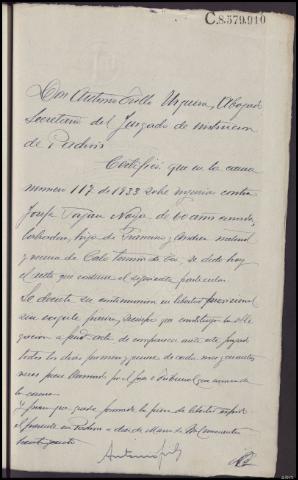 C.8.579.910
Don Antonio Trillo Urquera, Abogado
Secretario del Juzgado de instrucción
de Padrón
Certifico: que en la causa
número 117 de 1933 sobre injurias contra
José Noya, de 60 años
labrador, hijo de Francisco y Andrea natural
y vecino de término de se dictó hoy
el auto que contiene el siguiente particular
Se decreta su continuación en libertad provisional
sin exigirle fianza, siempre que constituya la obli
gación apud acta de comparecer ante este Juzgado
todos los días primero y quince de cada mes y cuantas
veces fuere llamado por el Juez o Tribunal que conozca de
la causa.
Y para que pueda formarse la pieza de libertad expido
el presente en Padrón a dos de Marzo de mil novecientos